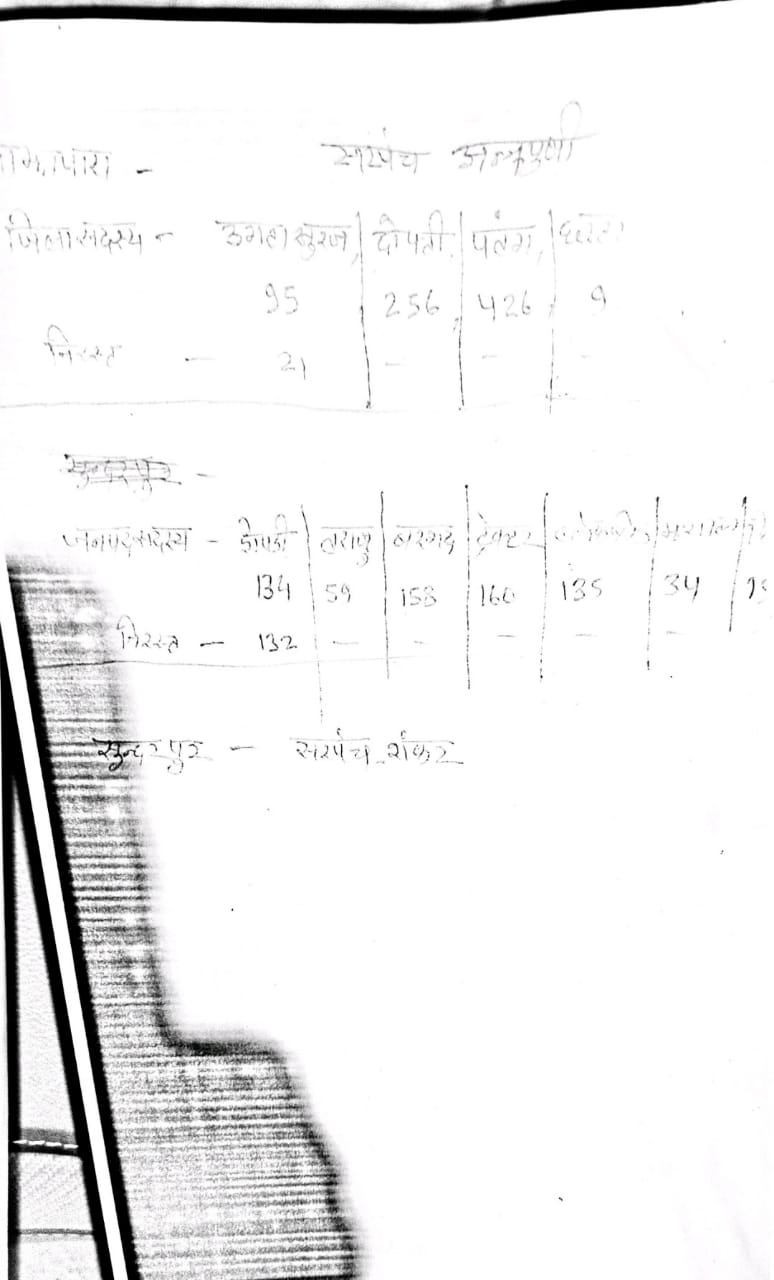 सरपंच अन्नपुर्णा
जिला सदस्य - उगता सुरज, दोपत्ती, पतंग,
95 256 426 9
निरस्त - 21 - - -
सुन्दरपुर -
जनपद सदस्य - झोपडी तराजु बरगद ट्रेक्टर
134 59 158 160 135 34
निरस्त - 132 - - - - -
सुन्दरपुर - सरपंच शंकर